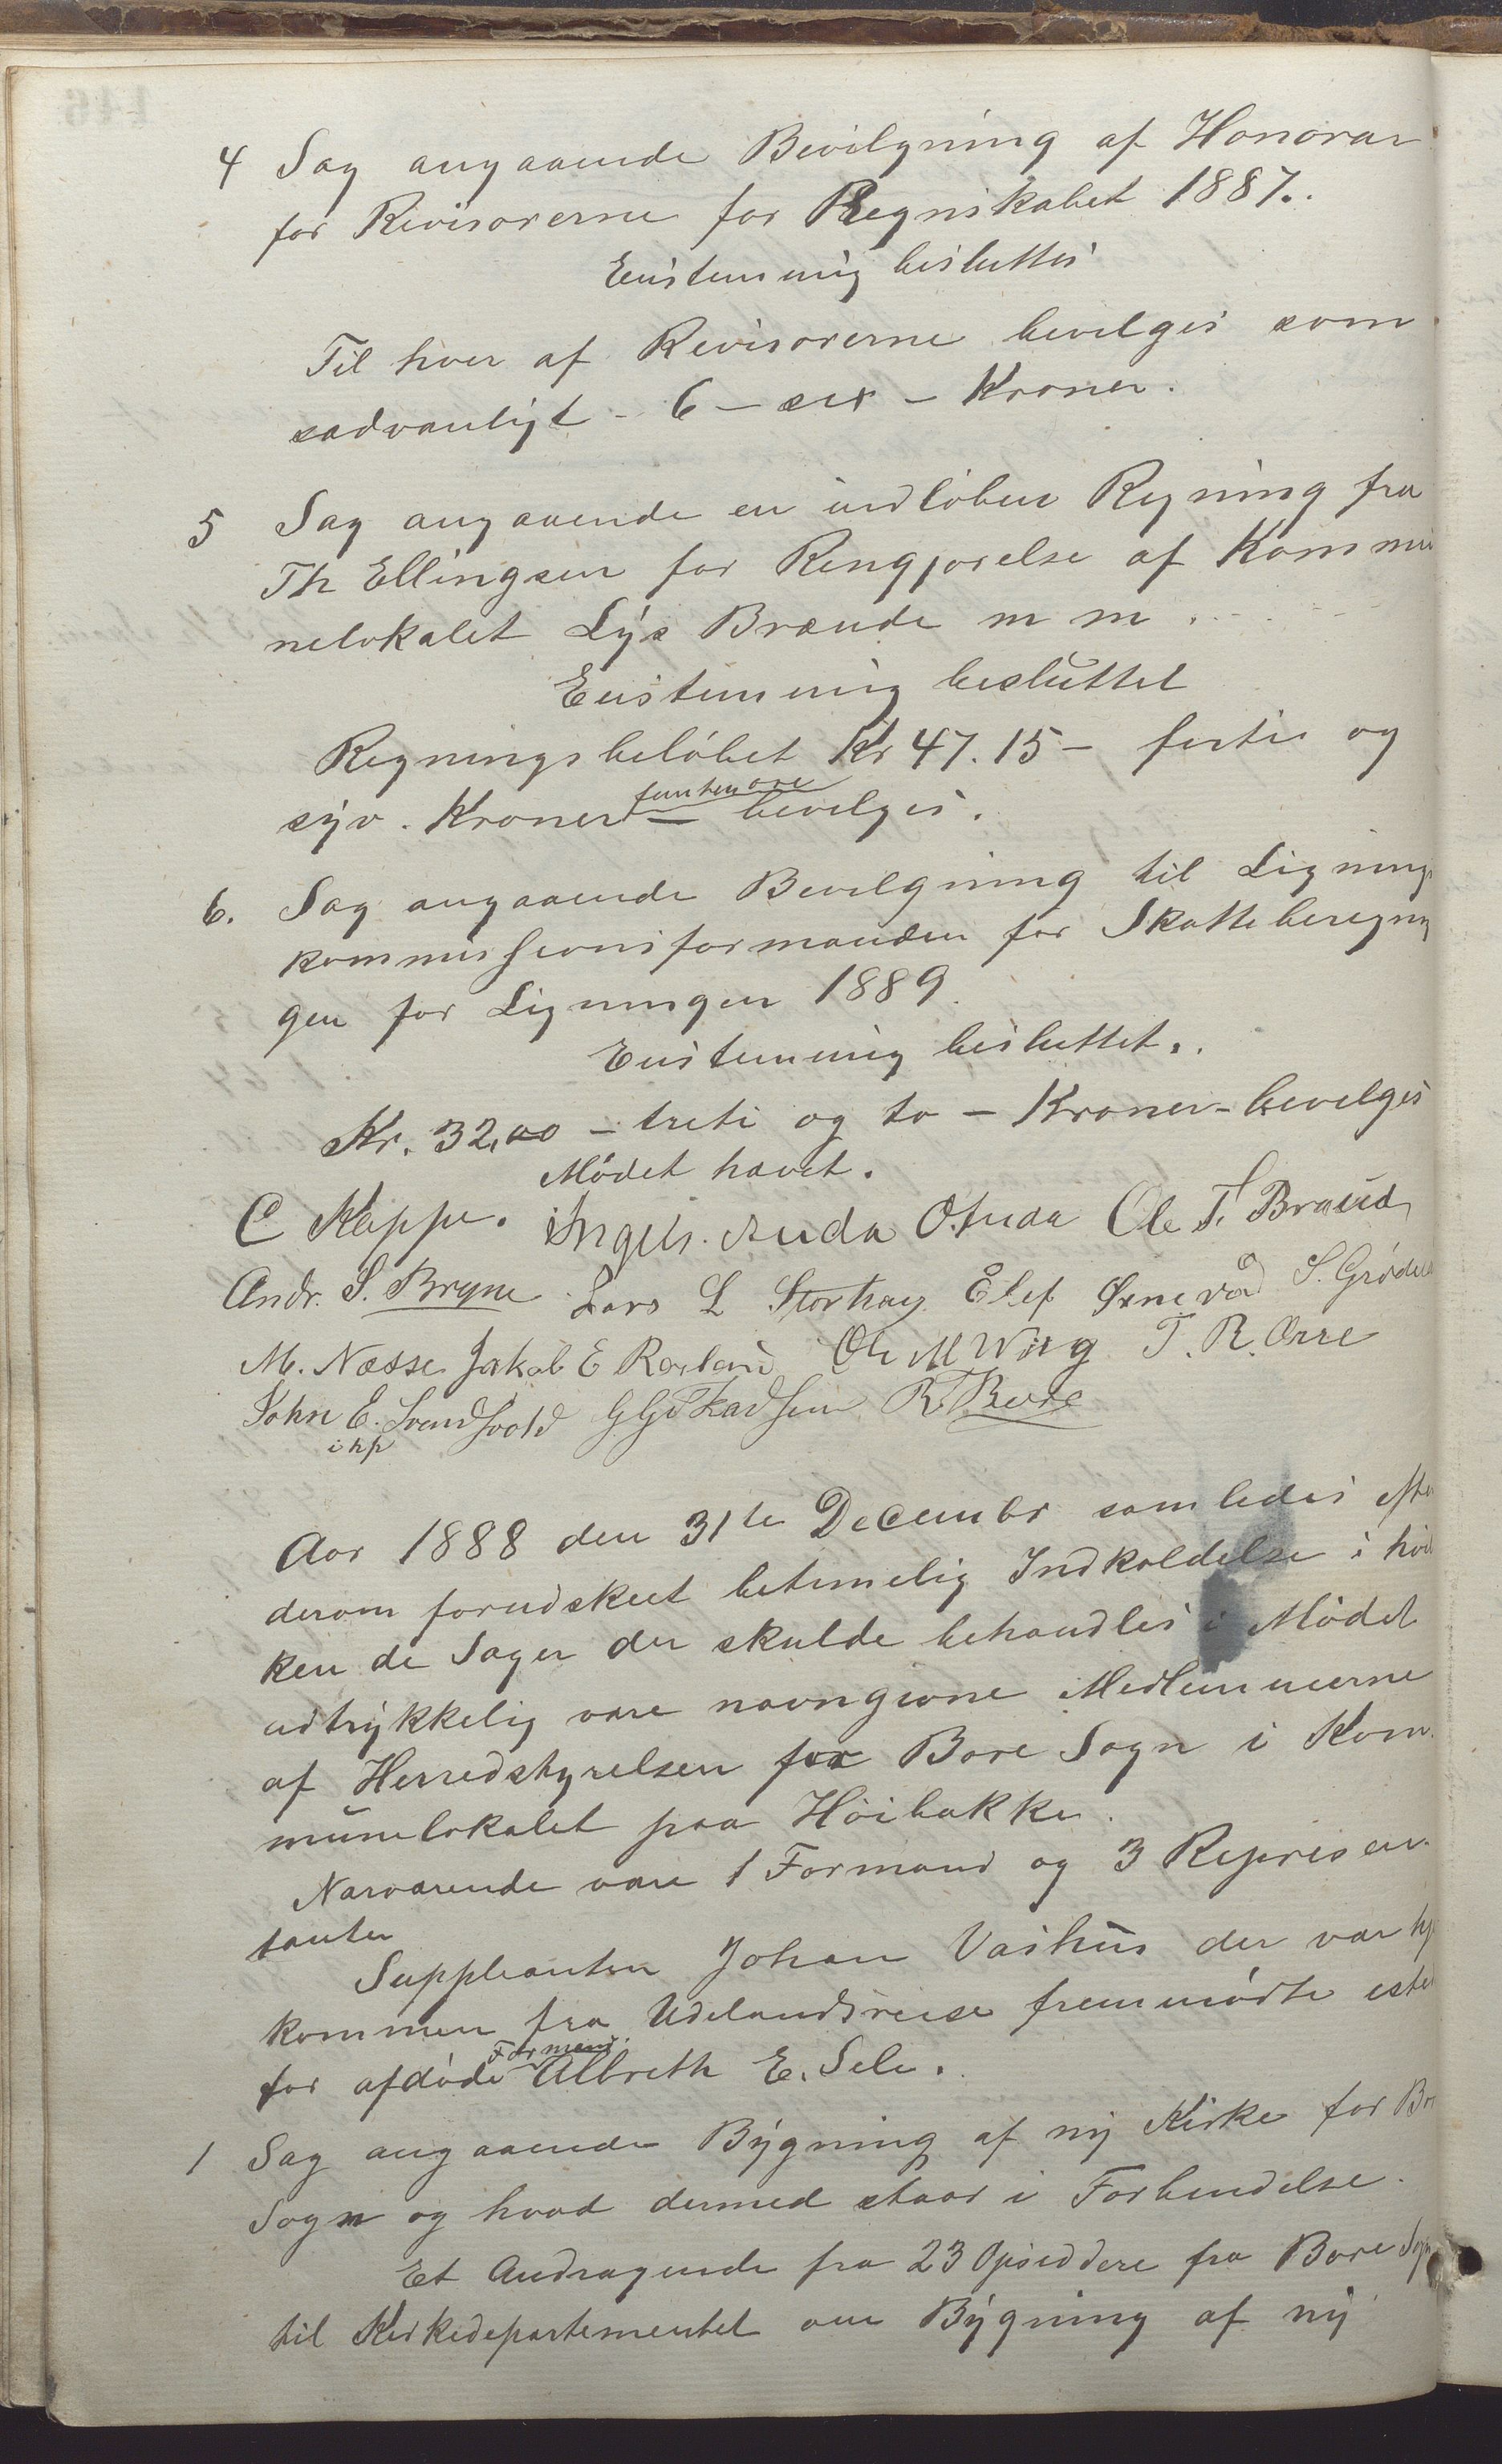 4 Sag angaaende Bevilgning af Honorar
for Revisorerne for Regnskabet 1887.
Enstemmig besluttes
Til hver af Revisorerne bevilges som
sædvanligt - 6 - sex - Kroner.
5 Sag angaaende en indløben Regning fra
Th Ellingsen for Rengjørelse af Kommu
nelokalet Lys Brænde m m.
Enstemmig besluttet
Regningsbeløbet Kr 47.15 - førtie og
syv. Kroner femten øre - bevilges.
6. Sag angaaende Bevilgning til Lignings
kommissionsformanden for Skatteberegnin
gen for Ligningen 1889.
Enstemmig besluttet.
Kr. 32,00 - treti og to - Kroner - bevilges
Mødet hævet.
C Kappe. Ingeb. Auda O. Tuda Ole T. Braud
Andr. S. Bryne Lars L Storhaug Elef Ørnevad S. Grødem
M. Næsse Jakob E Roeland Ole M Wiig T. R. Orre
John E. Svendsvold R. Bore
ihp
Aar 1888 den 31te Decembr samledes efter
derom forudskeet betimelig Indkaldelse i hvil
ken de Sager der skulde behandles i Mødet
udtrykkelig vare navngivne Medlemmerne
af Herredstyrelsen for Bore Sogn i Kom
munelokalet paa Høibakke.
Nærværende vare 1 Formand og 3 Repræsen
tanter
Suppleanten Johan Vashus der var hj
kommen fra Udelandsreise fremmødte isted
for afdøde Formand Albreth E. Sele.
1 Sag angaaende Bygning af ny Kirke for Bore
Sogn og hvad dermed staar i Forbindelse.
Et Andragende fra 23 Opsiddere fra Bore Sogn
til Kirkedepartementet om Bygning af ny